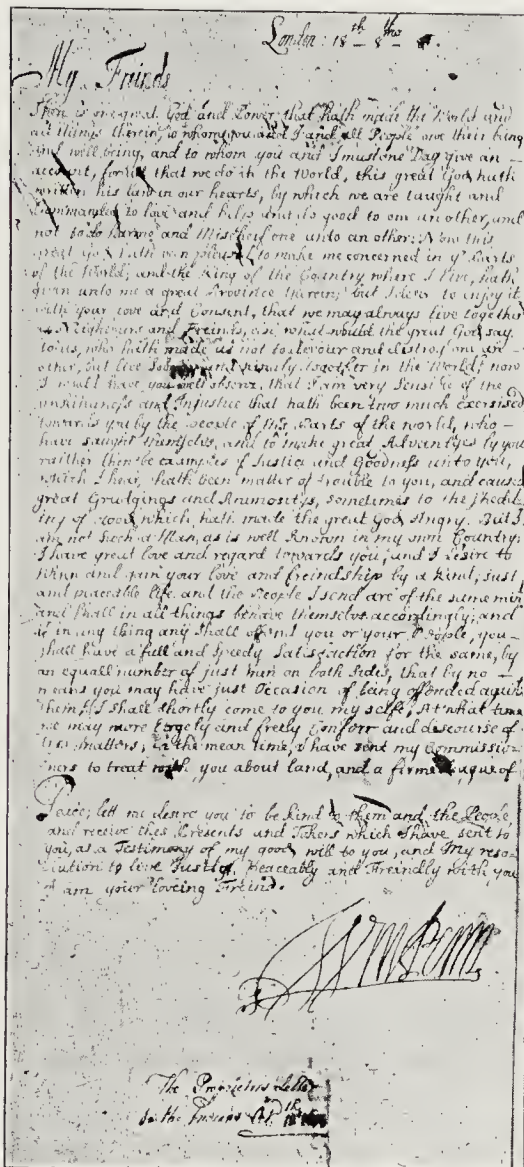 London: 18th 8mo
My Freinds
There is one great God and Power that hath made the World and
all things therein, to whom you and I and all People owe their being
and well being, and to whom you and I must one Day give an
account, for all that we do in the World, this great God hath
written his law in our hearts, by which we are taught and
Commanded to love and help and do good to one an other, and
not to do harme and Mischeif one unto an other: Now this
great God hath been pleased to make me concerned in yr Parts
of the World, and the King of the Country where I live, hath
given unto me a great Province therein; but I desire to enjoy it
with your love and Consent, that we may always live together
as Neighbours and Freinds, else what would the great God say
to us, who hath made us not to devour and destroy one an
other, but live Soberly and kindly together in the World: now
I would have you well observe, that I am very Sensible of the
unkindness and Injustice that hath been too much exersised
towards you by the People of these Parts of the world, who
have saught themselves, and to make great Advantages by you,
rather then be examples of Justice and Goodness unto you,
which I hear, hath been matter of trouble to you, and caused
great Grudgings and Animositys, sometimes to the shedd-
ing of blood, which hath made the great God Angry. But I
am not Such a Man, as is well Known in my own Country:
I have great love and regard towards you, and I desire to
Winn and gain your love and freindship by a kind, just
and peaceable life and the People I send are of the same mind
and Shall in all things behave themselves accordingly; and
if in any thing any Shall offend you or your People, you
shall have a full and Speedy Satisfaction for the same, by
an equall number of just men on both sides, that by no
means you may have just Occasion of being offended against
them; I shall shortly come to you my selfe, At what time
we may more largely and freely Confer and discourse of
these matters; in the mean time, I have sent my Commissio-
ners to treat with you about land, and a firm league of
Peace; lett me desire you to be kind to them and the People,
and receive thes Presents and Tokens which I have sent to
you, as a Testimony of my good will to you, and My reso-
lution to live Justly, Peaceably and Freindly with you
I am your loveing Freind.
Wm Penn
The Proprietors Letter
to the Indians